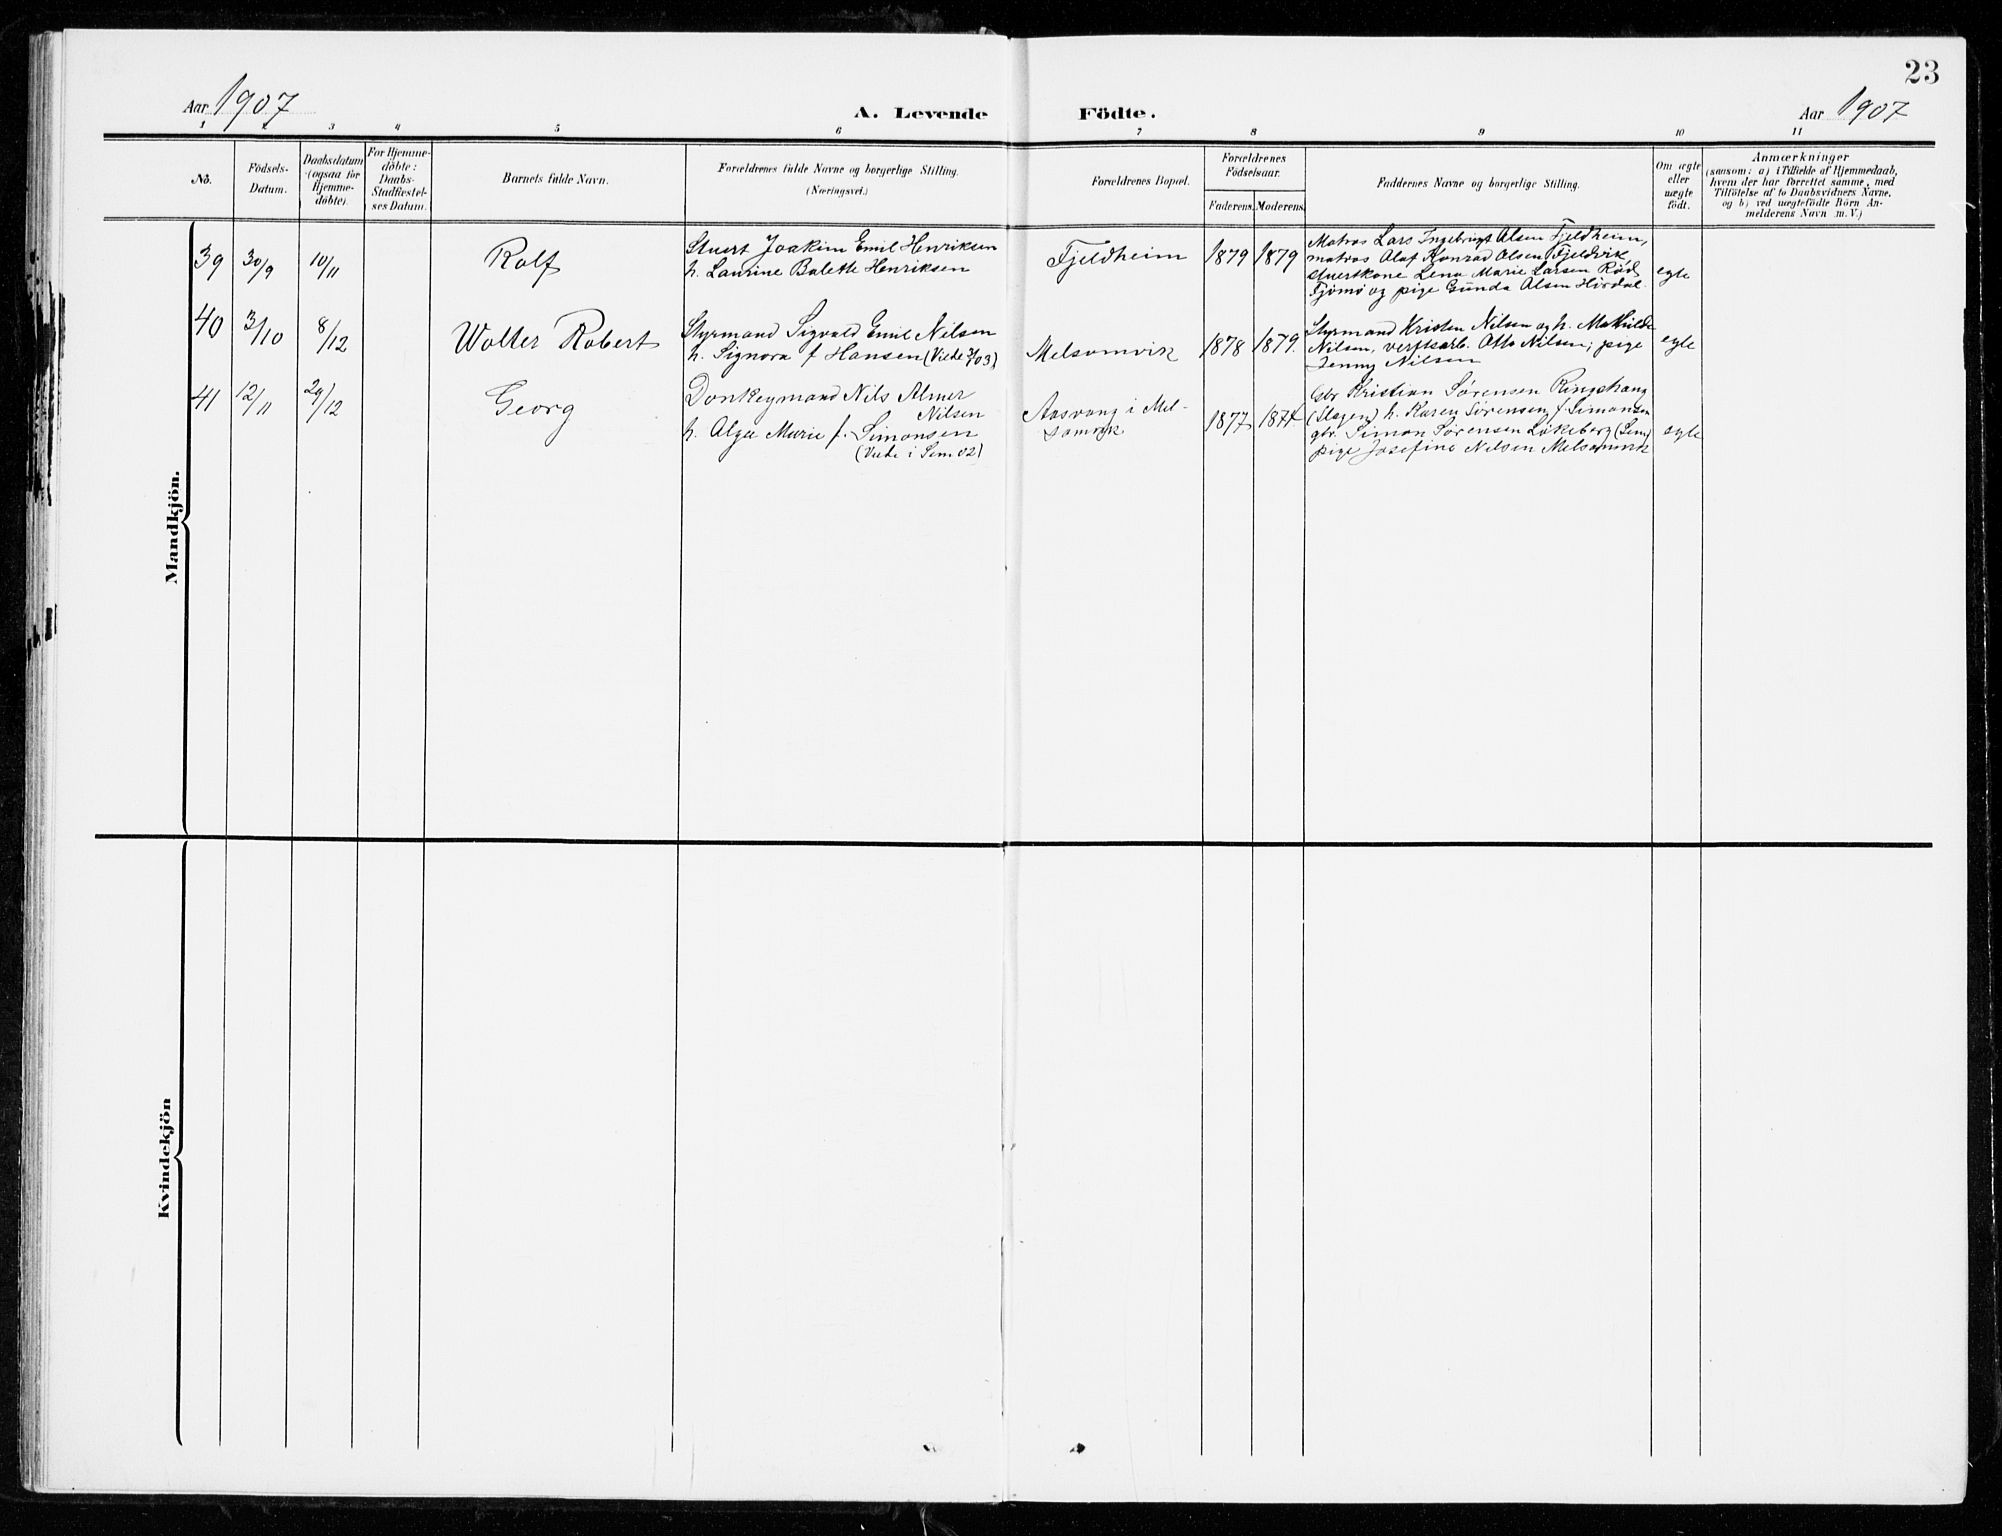 23
Aar 1907
A. Levende Födte.
Aar 1907
1 2 3 4 5 6 7 8 9 10 11
No.
Födsels-
Datum.
Daabsdatum
(ogsaa for
Hjemme-
döbte).
For Hjemme-
döbte:
Daabs-
Stadfæstel-
ses Datum.
Barnets fulde Navn.
Forældrenes fulde Navne og borgerlige Stilling.
(Næringsvei.)
Forældrenes Bopæl.
Forældrenes
Födselsaar.
Faderens. Moderens.
Faddernes Navne og borgerlige Stilling.
Om ægte
eller
uægte
födt.
Anmærkninger
(saasom: a) i Tilfælde af Hjemmedaab,
hvem der har forrettet samme, med
Tilföielse af to Daabsvidners Navne,
og b) ved uægtefödte Börn An-
melderens Navn m. V.)
Mandkjön.
39 30/9 10/11 Rolf
Stuert Joakim Emil Henriksen
h. Laurine Balette Henriksen
Fjeldheim 1879 1879
Matros Lars Ingebrigt Olsen Fjeldheim,
matros Olaf Konrad Olsen Fjeldvik
stuertkone Lena Marie Larsen Röd
Tjömö og pige Gunda Olsen Hirdal.
egte
40 3/10 8/12 Walter Robert
Styrmand Sigvald Emil Nilsen
h. Signora f. Hansen (Viede 7/03)
Melsomvik 1878 1879.
Styrmand Kristen Nilsen og h. Mathilde
Nilsen, verftsarb. Otto Nilsen; pige
Jenny Nilsen
egte
41 12/11 29/12 Georg
Donkeymand Nils Almer
Nilsen
h. Alga Marie f. Simonsen
(Viede i Sem 02)
Aasvang i Mel-
somvik
1877 1874.
Gbr Kristian Sørensen Ringshaug
(Slagen) h. Karen Sørensen f. Simonsen
gbr. Simon Sørensen Løkeberg (Sem)
pige Josefine Nilsen Melsomvik
egte
Kvindekjön